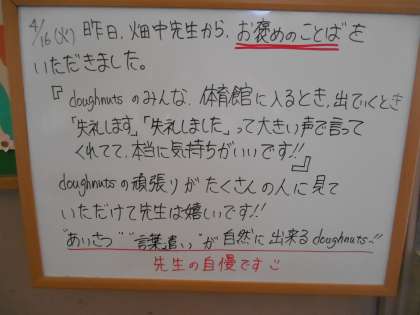 4/16(火) 昨日、畑中先生から、お褒めのことばを
いただきました。
『doughnutsのみんな、体育館に入るとき、出ていくとき
「失礼します」「失礼しました」って大きい声で言って
くれてて、本当に気持ちがいいです!!』
doughnutsの頑張りがたくさんの人に見て
いただけて先生は嬉しいです!!
"あいさつ" "言葉遣い"が自然に出来るdoughnuts~!!
先生の自慢です